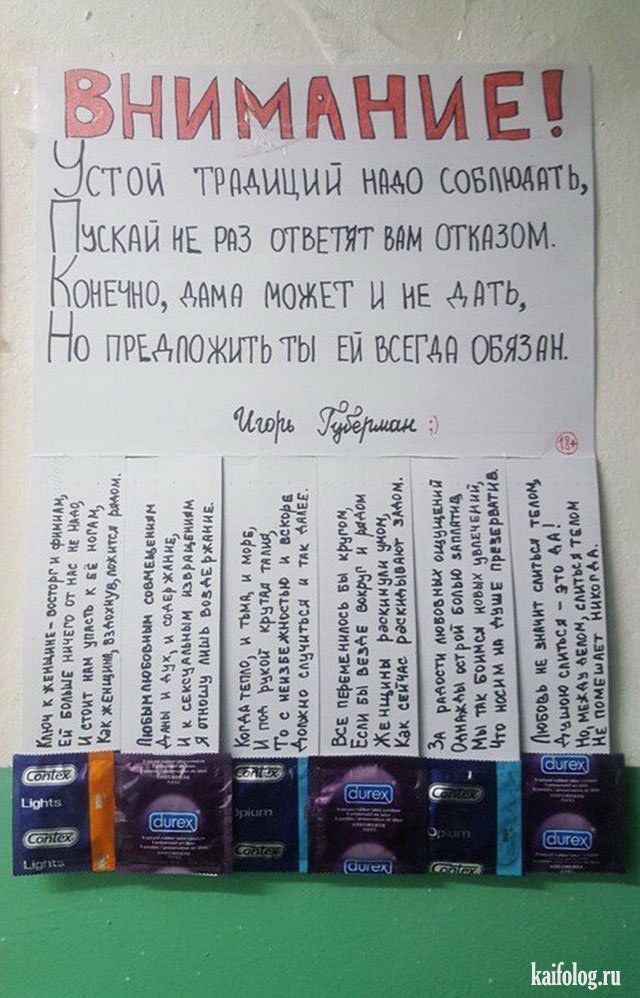 ВНИМАНИЕ!
Устой традиций надо соблюдать,
Пускай не раз ответят вам отказом.
Конечно, дама может и не дать,
Но предложить ты ей всегда обязан.
Игорь Губерман ;)
18+
Ключ к женщине - восторг и фимиам,
Ей больше ничего от нас не надо,
И стоит нам упасть к её ногам,
Как женщина, вздохнув, ложится рядом.
Любым любовным совмещениям
Даны и дух, и содержание,
И к сексуальным извращениям
Я отношу лишь воздержание.
Когда тепло, и тьма, и море,
И под рукой крутая талия,
То с неизбежностью и вскоре
Должно случиться и так далее.
Все переменилось бы кругом,
Если бы везде вокруг и рядом
Женщины раскинули умом,
Как сейчас раскидывают задом.
За радости любовных ощущений
Однажды острой болью заплатив,
Мы так боимся новых увлечений,
Что носим на душе презерватив.
Любовь не значит слиться телом,
Душою слиться - это да!
Но, между делом, слиться телом
Не помешает никогда.
Contex
Lights
Contex
Lights
durex
Contex
Opium
Contex
durex
durex
Contex
Opium
Contex
durex
durex
kaifolog.ru